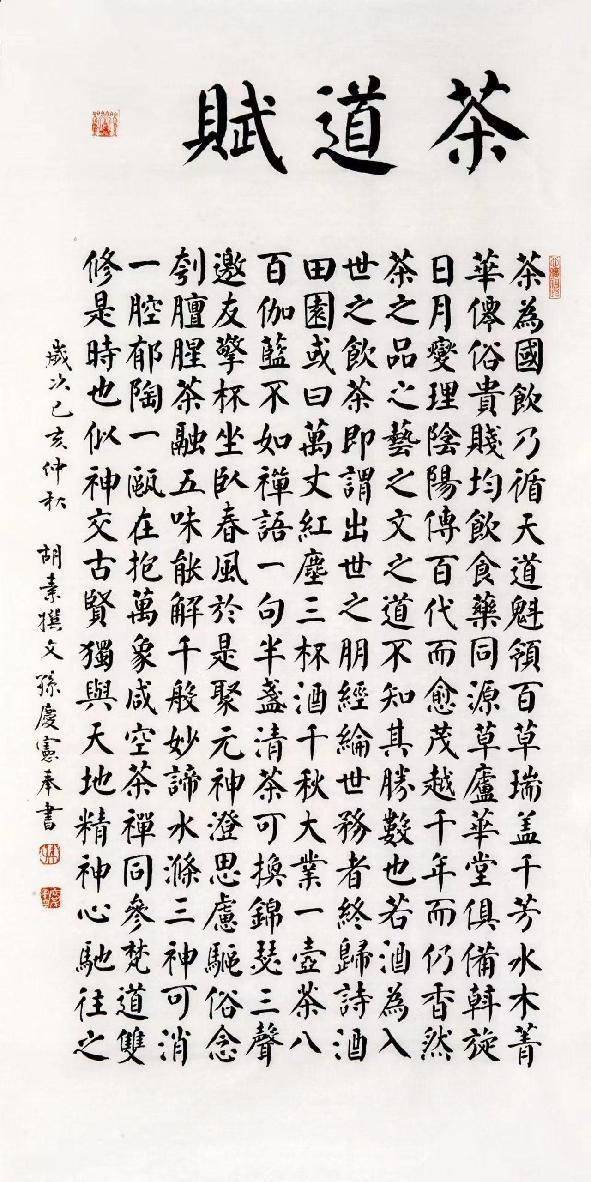 茶道賦
茶為國飲乃循天道魁領百草瑞盖千芳水木菁
華僊俗貴賤均飲食藥同源草廬華堂俱備斡旋
日月燮理陰陽傳百代而愈茂越千年而仍香然
茶之品之藝之文之道不知其勝數也若酒為入
世之飲茶即謂出世之朋經綸世務者終歸詩酒
田園或曰萬丈紅塵三杯酒千秋大業一壺茶八
百伽藍不如禪語一句半盞清茶可換錦瑟三聲
邀友擎杯坐臥春風於是聚元神澄思慮驅俗念
刳膻腥茶融五味能解千般妙諦水滌三神可消
一腔郁陶一甌在抱萬象咸空茶禪同參梵道雙
修是時也似神交古賢獨與天地精神心馳往之
歲次己亥仲秋 胡素撰文孫慶憲奉書